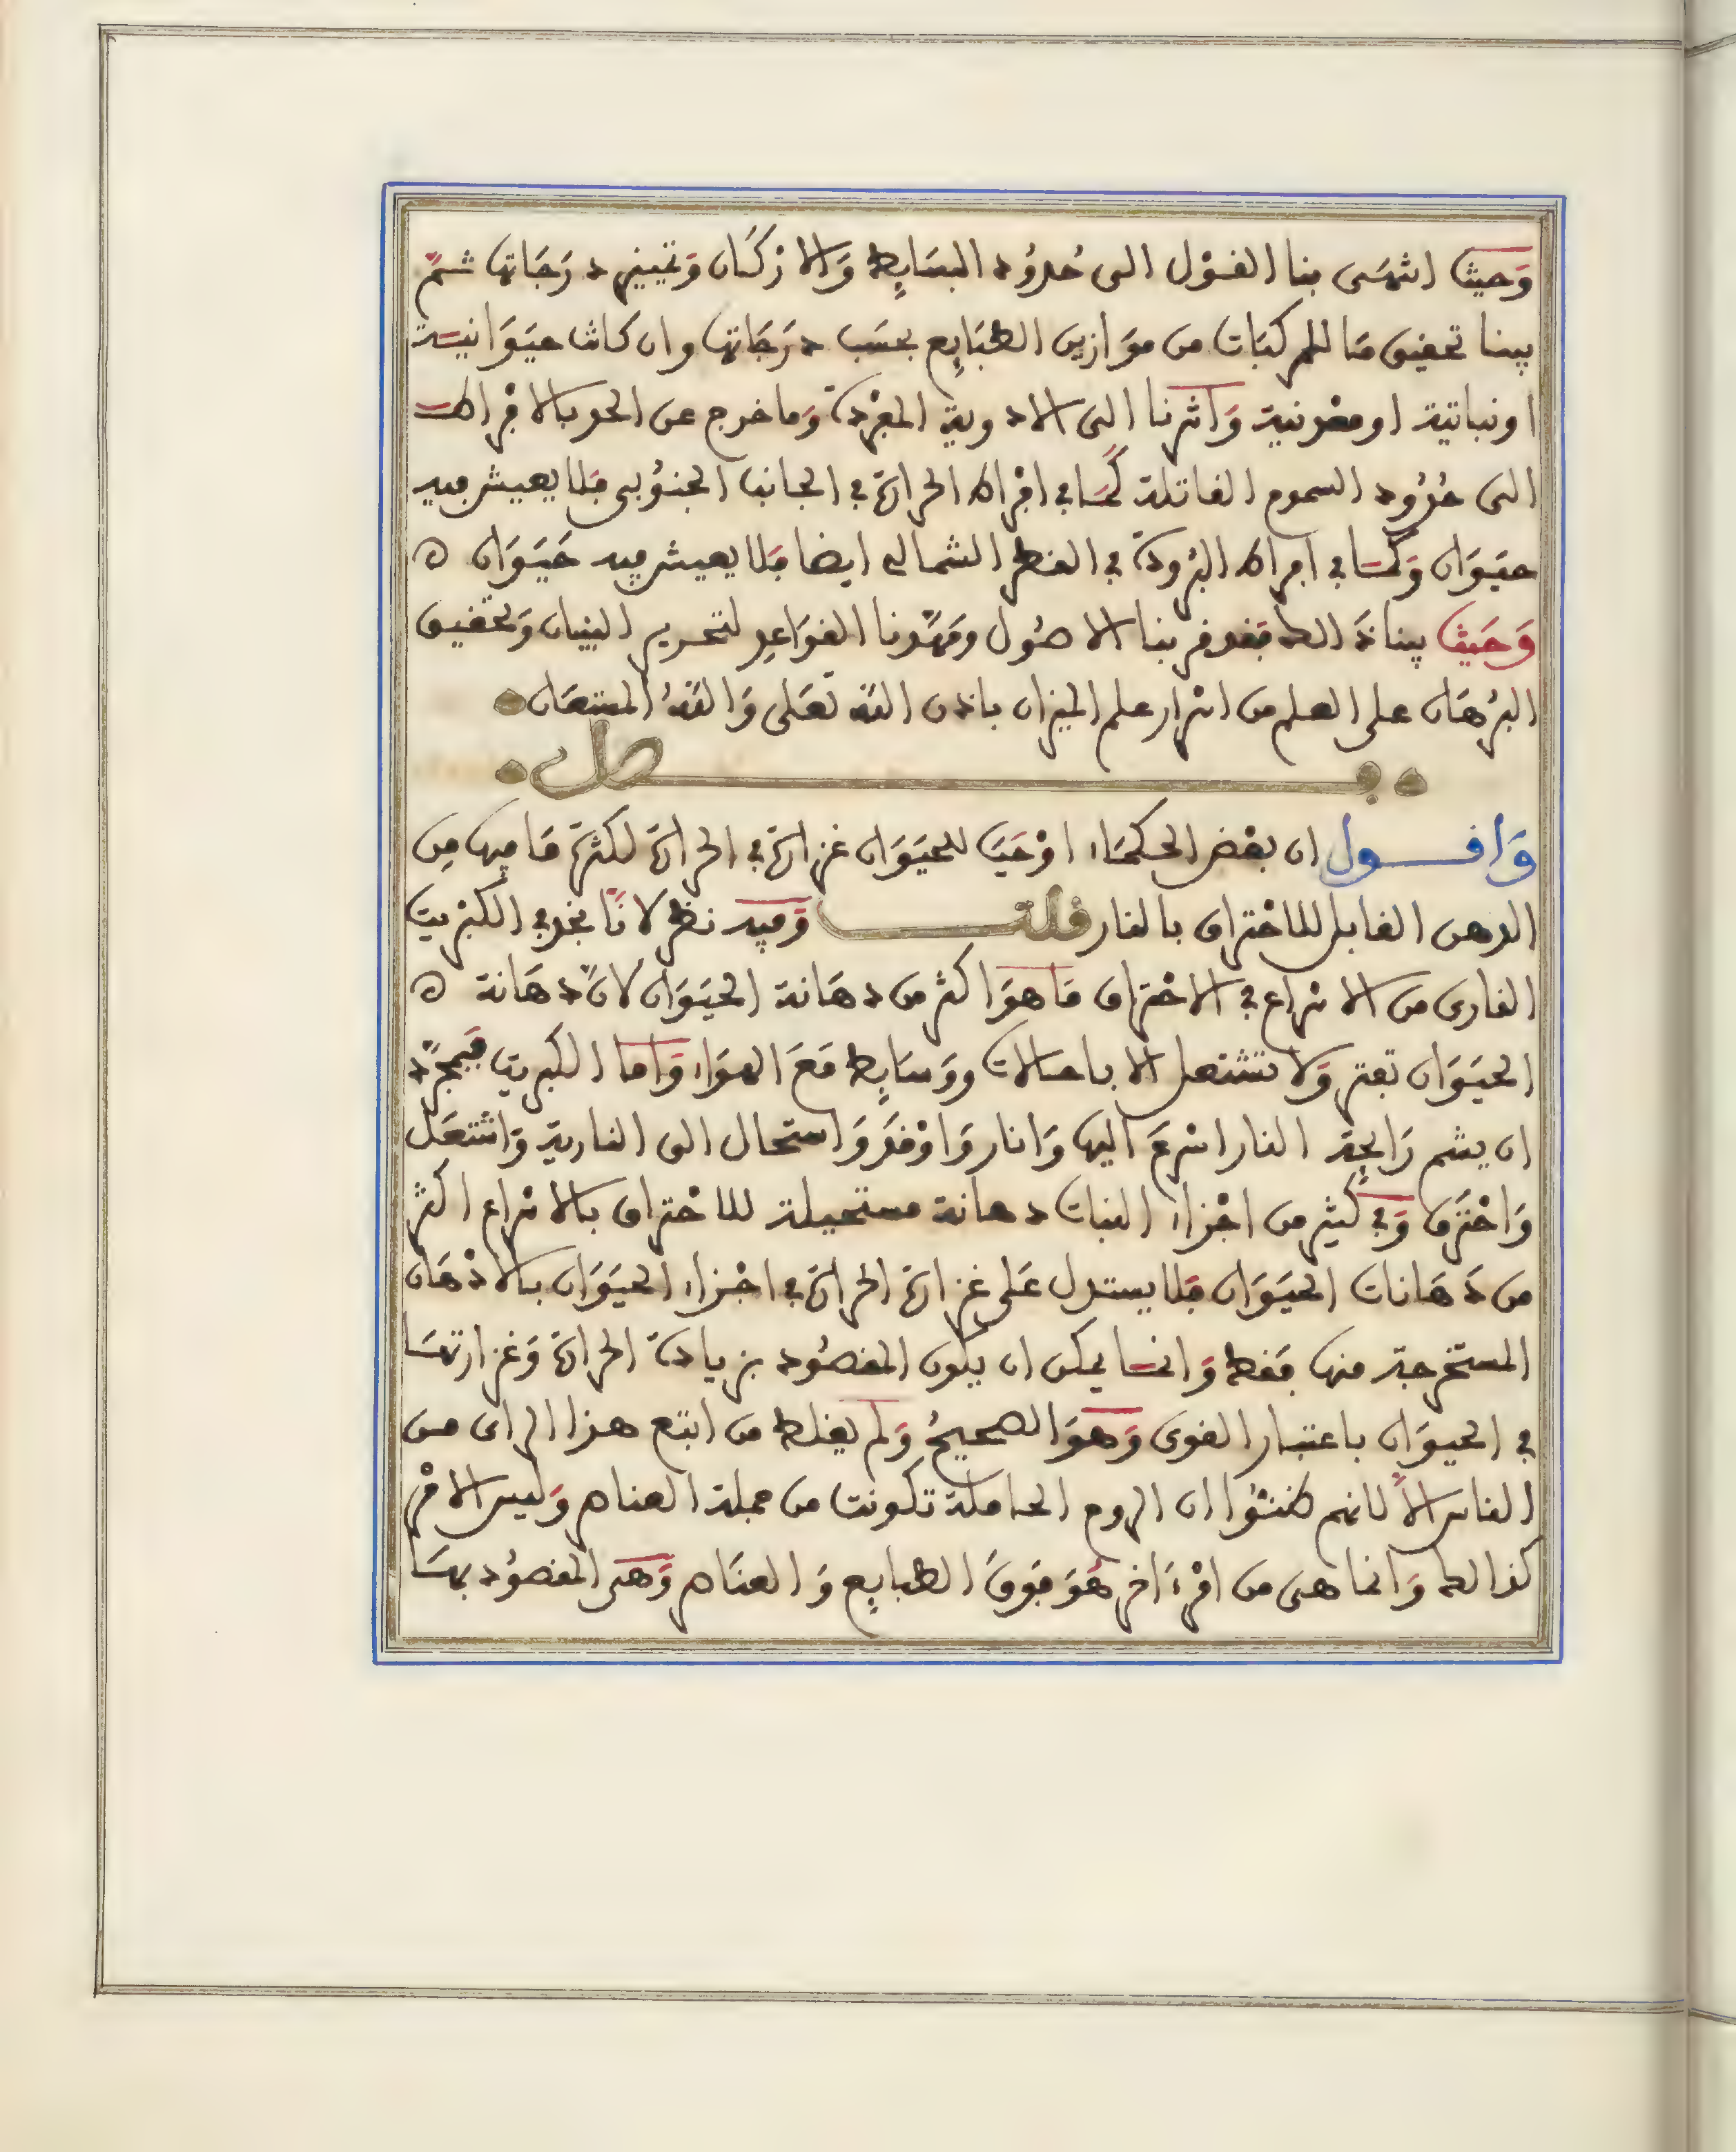 وَحيث انتهَى بنا القوْل الى حُدوُد البسَايِط وَالارْكَان وَتمييز درَجَاتها ثمّ
بينا تحقيق مَا للمركبَات من موَازين الطبَايِع بحسَب درَجَاتها وان كانت حيَوَانيـة
او نباتية او معْدنية وَاشرنا الى الادوية المفرَدة وَما خرج عن الحد بالافراط
الى حُدُود السموم القاتلة كمَا في افرَاط الحرارة في الجانب الجنوُبي فلا يعيش فيه
حيَوَان وَكمَا في افراط البرُودة في القطر الشمالي ايضا فلا يعيش فيه حَيَوَان ه
وَحَيث بينا ذَلك فقد قربنا الاصُول ومَهّدنا القوَاعِد لتحرير البَيان وَتحقيق
البرْهَان على العلم من اسْرار علم الميزان باذن اللّه تعَلى وَاللّهُ المستعَان
فصل
وَاقـول ان بعْض الحكمَاء اوْجَبَ للحيَوَان غزارة في الحرارة لكثرة مَا فيها مِن
الدهن القابل للاحْتراق بالنار قلت وَفيه نظر لانّا نجد في الكبْريت
الفارى من الاسْراع في الاحْتراق مَا هوَ اكثر من دهَانة الحيَوَان لانّ دهَانة ه
الحيَوَان تفتر وَلا تشتعل الا باحالات ووَسَايِط مَعَ الهوَاء وَامّا الكبريت فبمجرّد
ان يشم رَايحة النار اسْرعَ اليها وَانار وَاوْقدَ وَاستحال الى النارية وَاشتعَل
وَاحْترَق وَفي كثير من اجْزاء النبات دهانة مستحيلة للاحْتراق بالاسْراع اكثر
من دَهَانات الحيَوَان فلا يستدل عَلى غزارة الحرارة في اجْزاء الحيَوَان بالادْهَان
المستخرجة منها فقط وَانمـا يمكن ان يكون المقصُود بزيادة الحرارة وَغزارتهـا
في الحيوَان باعتبار القوى وَهوَ الصحيحُ وَلم يغلط من اتبع هذا الراى مـن
الناس الاّ لانهم ظننوُا ان الروح الحاملة تكونت من جملة العناصر وَليس الامْر
كذالك وَانما هى من امْرٍ اخر هُوَ فوقَ الطبايِع وَالعنَاصر وَهى المقصوُد بهَـا